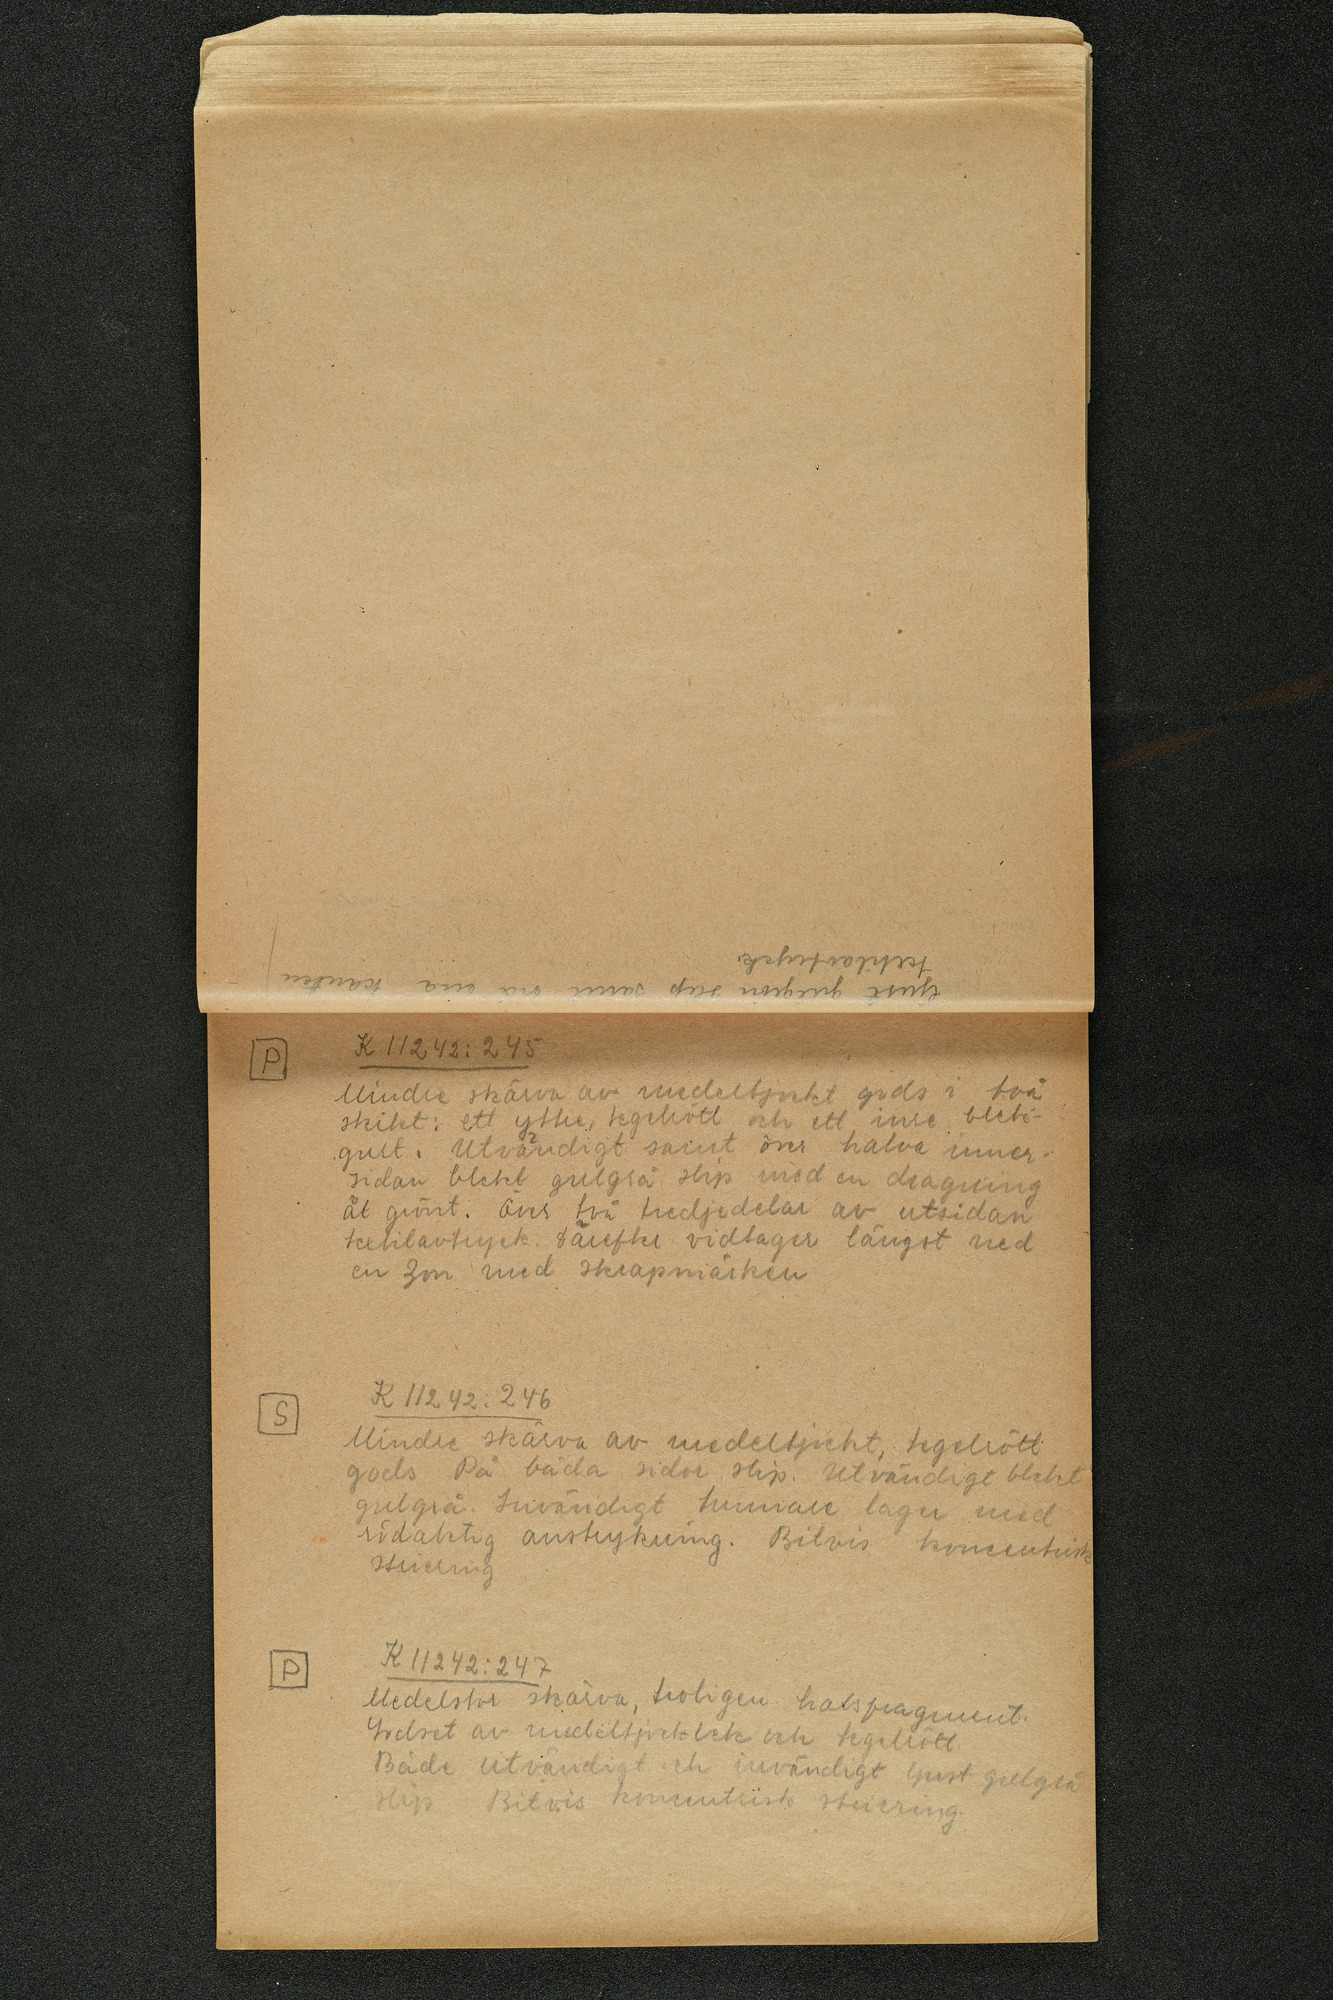 ljust gulgrön slip samt vid ena kanten
textilavtryck.
P
K 11242:245
Mindre skärva av medeltjockt gods i två
skikt: ett yttre, tegelrött och ett inre blek-
gult. Utvändigt samt över halva inner-
sidan blekt gulgrå slip med en dragning
åt grönt. Över två tredjedelar av utsidan
textilavtryck. Därefter vidtager längst ned
en zon med skrapmärken
S
K 11242:246
Mindre skärva av medeltjockt, tegelrött
gods På båda sidor slip. Utvändigt blekt
gulgrå. Invändigt tunnare lager med
rödaktig anstrykning. Bitvis koncentrisk
striering
P
K 11242:247
Medelstor skärva, troligen halsfragment.
Godset av medeltjocklek och tegelrött
Både utvändigt och invändigt ljust gulgrå
slip Bitvis koncentrisk striering